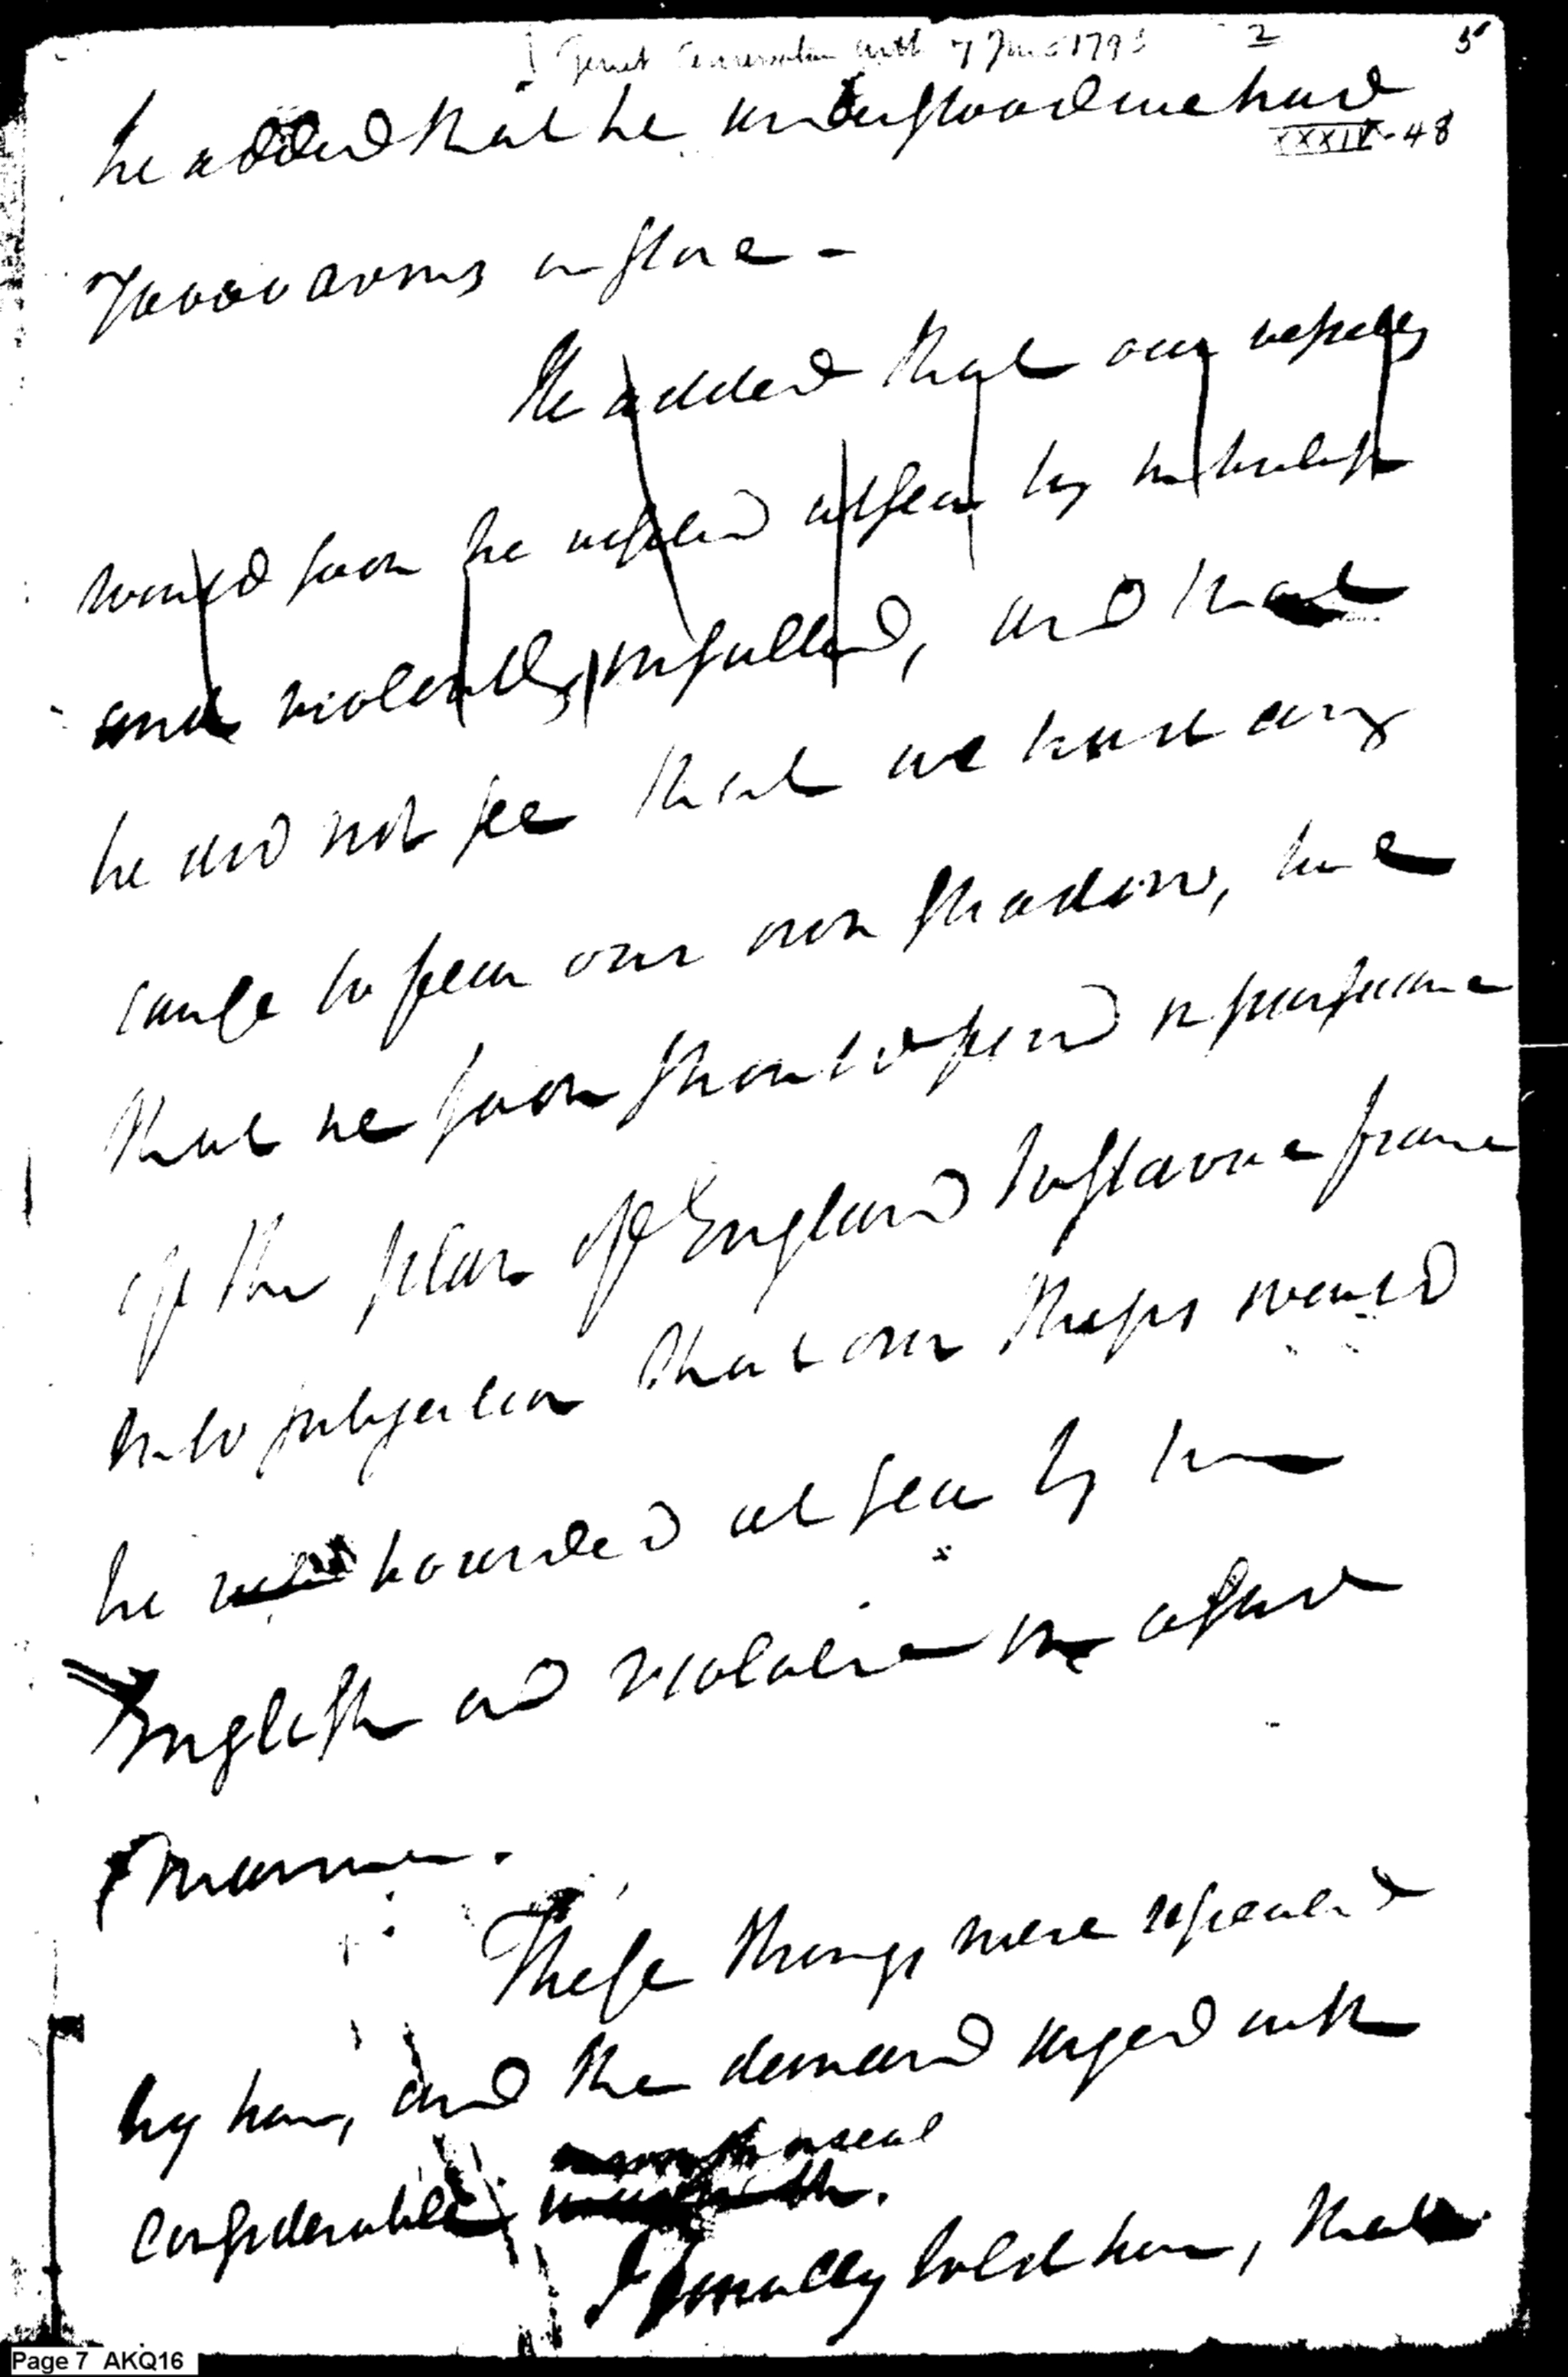 Genet Conversation with 7 June 1793 2 5
he added that he understood we had
XXXIV-48
70000 arms in store -
He added that our vessels
would soon be visited at sea by the british
and violently insulted, and that
he did not see that we have any
cause to fear our own shadows, but
that we soon should find in pursuance
of the plan of England to starve france
into subjection that our ships would
be boarded at sea by the
English and violative in a
manner.
These things were repeated
by him, and the demand urged with
considerable
I finally told him, that
Page 7 AKQ16